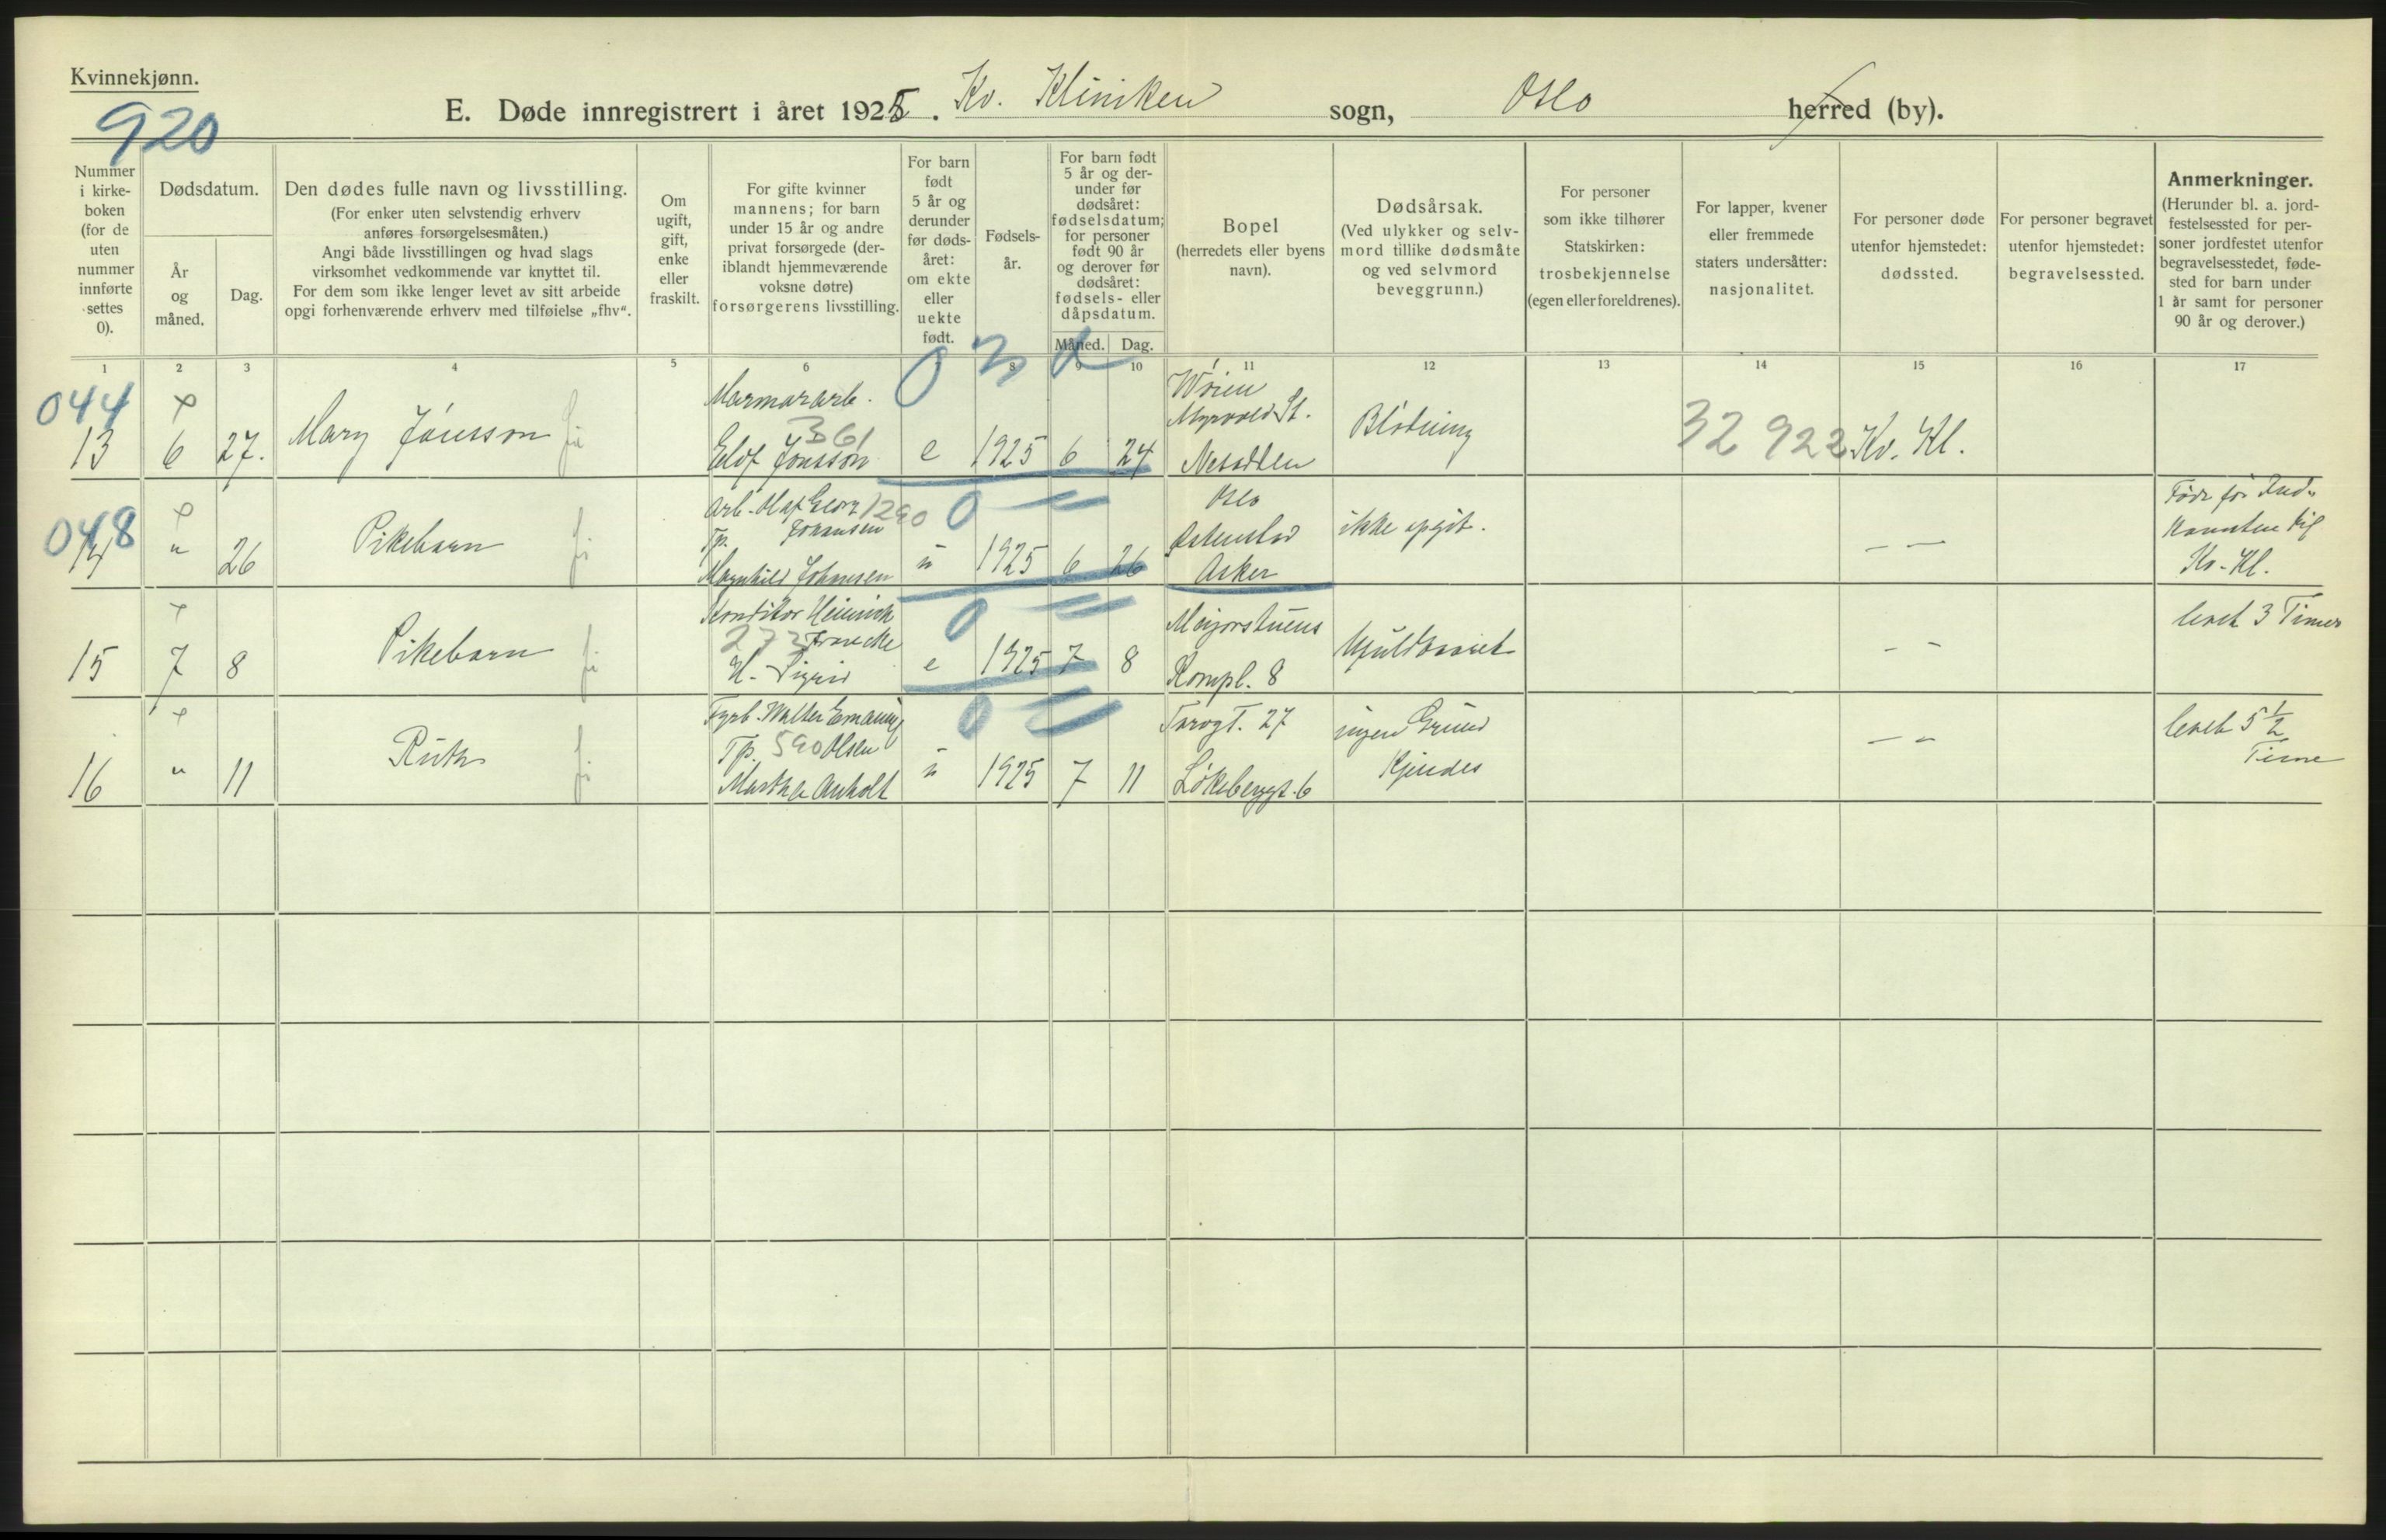 Kvinnekjønn.
920
E. Døde innregistrert i året 1925. Kv. Kliniken sogn, Oslo herred (by).
Nummer i kirke-boken (for de uten nummer innførte settes 0).
Dødsdatum.
År og måned.
Dag.
Den dødes fulle navn og livsstilling.
(For enker uten selvstendig erhverv anføres forsørgelsesmåten.)
Angi både livsstillingen og hvad slags virksomhet vedkommende var knyttet til.
For dem som ikke lenger levet av sitt arbeide opgi forhenværende erhverv med tilføielse „fhv“.
Om ugift, gift, enke eller fraskilt.
For gifte kvinner mannens; for barn under 15 år og andre privat forsørgede (deriblandt hjemmeværende voksne døtre) forsørgerens livsstilling.
For barn født 5 år og derunder før dødsåret: om ekte eller uekte født.
Fødsels-år.
For barn født 5 år og derunder før dødsåret: fødselsdatum; for personer født 90 år og derover før dødsåret: fødsels- eller dåpsdatum.
Måned. Dag.
Bopel
(herredets eller byens navn).
Dødsårsak.
(Ved ulykker og selvmord tillike dødsmåte og ved selvmord beveggrunn.)
For personer som ikke tilhører Statskirken: trosbekjennelse (egen eller foreldrenes).
For lapper, kvener eller fremmede staters undersåtter: nasjonalitet.
For personer døde utenfor hjemstedet: dødssted.
For personer begravet utenfor hjemstedet: begravelsessted.
Anmerkninger.
(Herunder bl. a. jordfestelsessted for personer jordfestet utenfor begravelsesstedet, fødested for barn under 1 år samt for personer 90 år og derover.)
1 2 3 4 5 6 8 9 10 11 12 13 14 15 16 17
044
13 6 27. Mary Jónsson
Marmorarb.
361
Elof Jonsson
e 1925 6 24
Myrvold St.
Nesodden
Blødning
32 922
Kv. Kl.
048
14 " 26 Pikebarn
Arb. Olaf Georg 1290
Johansen
Tp.
Magnhild Johansen
u 1925 6 26
Oslo
Østenstad
Asker
ikke opgit.
— —
Født før Ind-
komsten til
Kv. Kl.
15 7 8 Pikebarn
Konditor Heinrich
273
H. Sigrid
e 1925 7 8
Majorstuens
Kompl. 8
— —
levet 3 Timer
16 " 11 Ruth
Fyrb. Walter Emanuel
Tp. 590 Olsen
Martha Anholt
u 1925 7 11
Torvgt. 27
Løkeberggt. 6
ingen Grund
Kjendes
— —
levet 5 1/2
Time